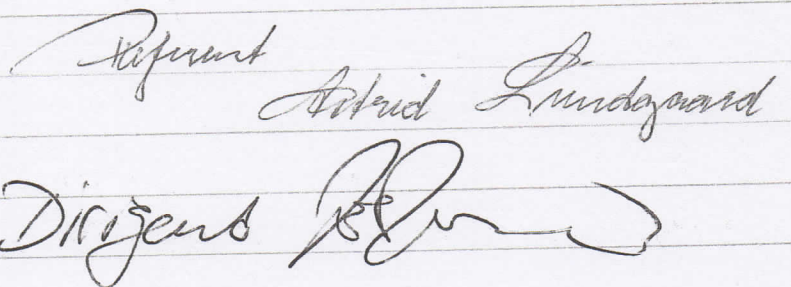 Referent
Astrid Lundgaard
Dirigent